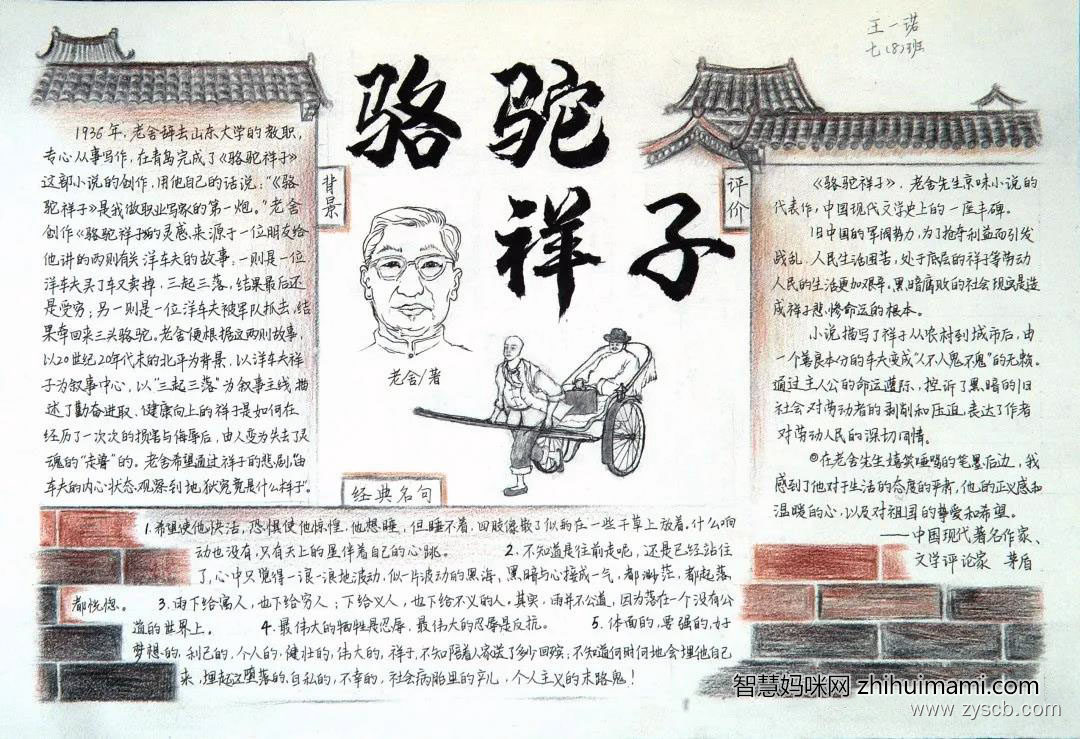 王一诺
七(8)班
骆驼
祥子
背景
1936年,老舍辞去山东大学的教职,
专心从事写作,在青岛完成了《骆驼祥子》
这部小说的创作,用他自己的话说:“《骆
驼祥子》是我做职业写家的第一炮。”老舍
创作《骆驼祥子》的灵感来源于一位朋友给
他讲的两则有关洋车夫的故事:一则是一位
洋车夫买了车又卖掉,三起三落,结果最后还
是受穷;另一则是一位洋车夫被军队抓去,结
果牵回来三头骆驼。老舍便根据这两则故事,
以20世纪20年代末的北平为背景,以洋车夫祥
子为叙事中心,以“三起三落”为叙事主线,描
述了勤奋进取、健康向上的祥子是如何在
经历了一次次的损害与侮辱后,由人变为失去了灵
魂的“走兽”的。老舍希望通过祥子的悲剧,“由
车夫的内心状态观察到地狱究竟是什么样子”。
老舍/著
评价
《骆驼祥子》,老舍先生京味小说的
代表作,中国现代文学史上的一座丰碑。
旧中国的军阀势力,为了抢夺利益而引发
战乱,人民生活困苦,处于底层的祥子等劳动
人民的生活更加艰辛。黑暗腐败的社会现实是造
成祥子悲惨命运的根本。
小说描写了祥子从农村到城市后,由
一个善良本分的车夫变成“人不人鬼不鬼”的无赖。
通过主人公的命运遭际,控诉了黑暗的旧
社会对劳动者的剥削和压迫,表达了作者
对劳动人民的深切同情。
◎在老舍先生嬉笑唾骂的笔墨后边,我
感到了他对于生活的态度的严肃,他的正义感和
温暖的心,以及对祖国的挚爱和希望。
——中国现代著名作家、
文学评论家 茅盾
经典名句
1.希望使他快活,恐惧使他惊惶,他想睡,但睡不着,四肢像散了似的在一些干草上放着。什么响
动也没有,只有天上的星伴着自己的心跳。 2.不知道是往前走呢,还是已经站住
了,心中只觉得一浪一浪地波动,似一片波动的黑海,黑暗与心接成一气,都渺茫,都起落,
都恍惚。 3.雨下给富人,也下给穷人;下给义人,也下给不义的人。其实,雨并不公道,因为落在一个没有公
道的世界上。 4.最伟大的牺牲是忍辱,最伟大的忍辱是反抗。 5.体面的,要强的,好
梦想的,利己的,个人的,健壮的,伟大的,祥子,不知陪着人家送了多少回殡;不知道何时何地会埋他自己
来,埋起这堕落的,自私的,不幸的,社会病胎里的产儿,个人主义的末路鬼!
智慧妈咪网 zhihuimami.com
www.zyscb.com